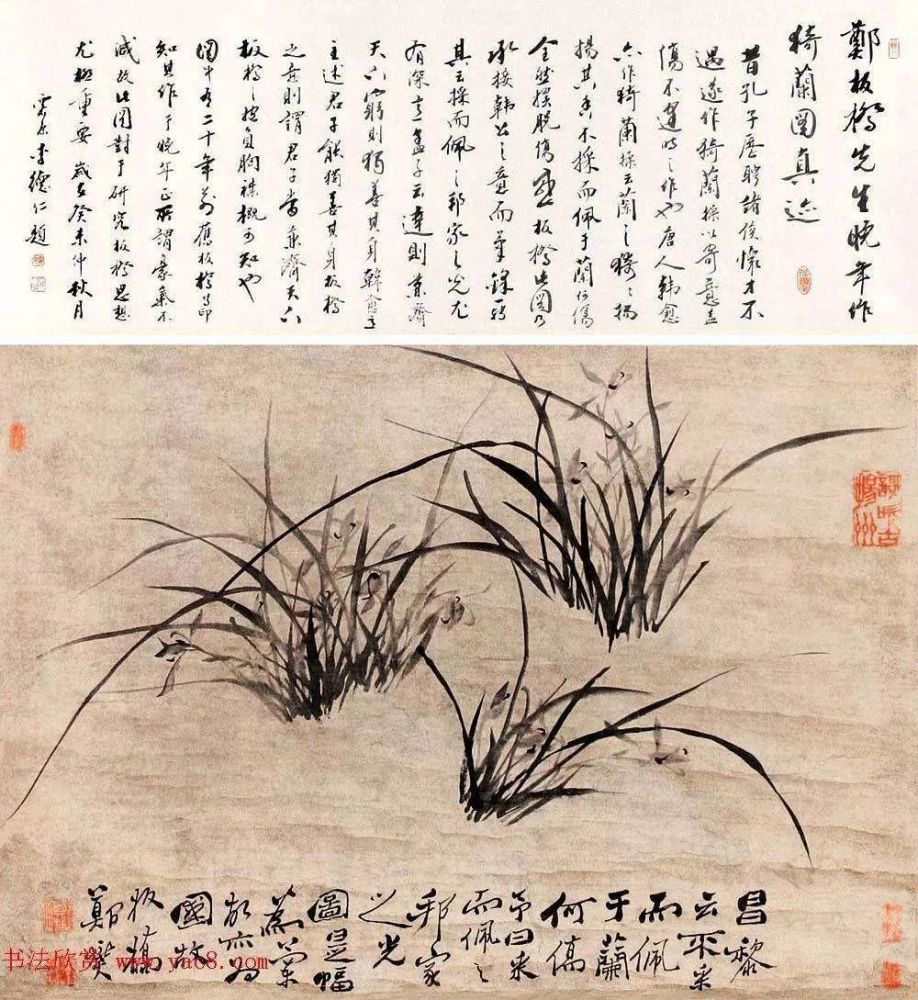 鄭板橋先生晚年作
猗蘭圖真迹
昔孔子歷聘諸侯懷才不
遇遂作猗蘭操以寄意蓋
傷不逢時之作也唐人韓愈
亦作猗蘭操云蘭之猗猗揚
揚其香不採而佩于蘭何傷
全然擺脫傷感板橋此圖乃
承接韓公之意而筆鋒
其云採而佩之邦家之光尤
有深意孟子云達則兼濟
天下窮則獨善其身韓愈
主述君子能獨善其身板橋
之意則謂君子當兼濟天下
板橋之抱負胸襟概可知也
圖中有二十年前舊板橋印
知其作于晚年正所謂豪氣不
減故此圖對于研究板橋思想
尤極重要 歲在癸未仲秋月
仁題
歌吹古揚州
昌黎
云不采
而佩
于蘭
何傷
予曰采
而佩之
邦家
之光
圖是幅
國
板橋
鄭燮
书法欣赏 www.yac8.com